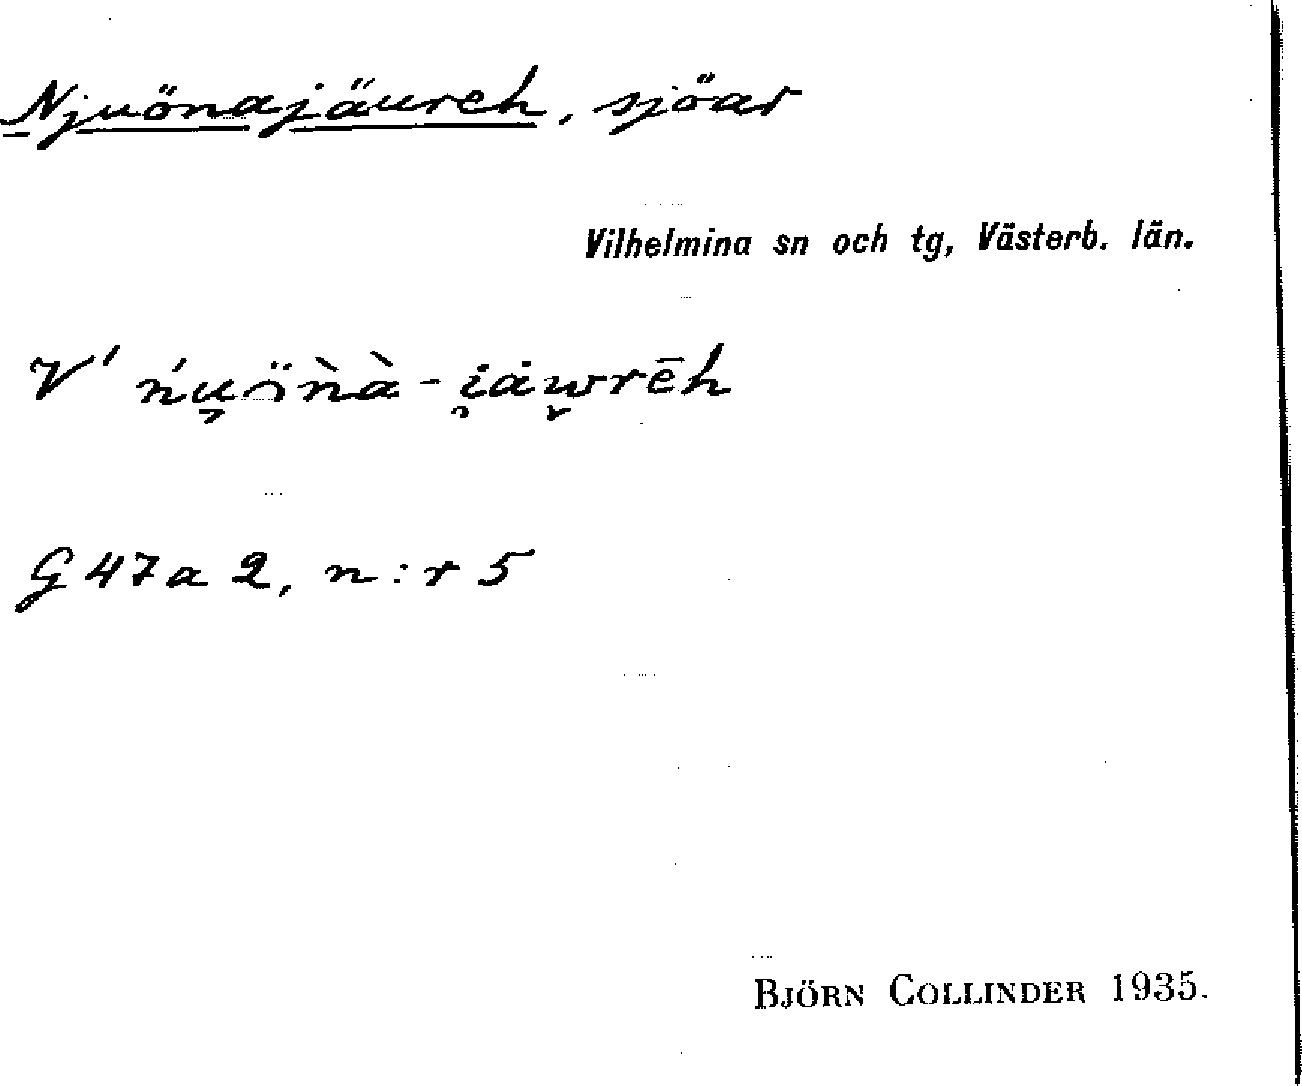 Njuönajäureh, sjöar
Vilhelmina sn och tg, Västerb. län.
V' ńu̯ö̀ǹà-i̯ȧw̬rēh
G 47 a 2, n:r 5
BJÖRN COLLINDER 1935.